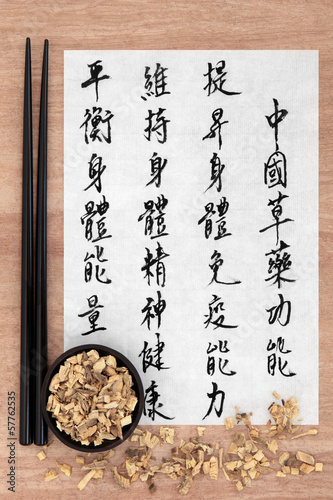 中國草藥功能
提昇身體免疫能力
維持身體精神健康
平衡身體能量
© marilyn barbone - 57762535